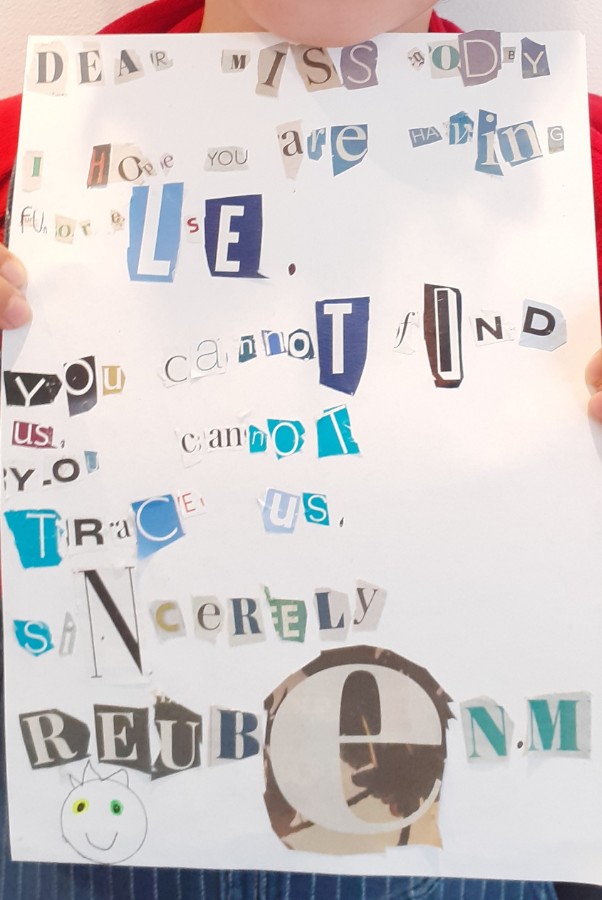 DEAR MISS gODBY
I HOPe YOU are HAVinG
FUn or eLsE.
YOu cannoT fIND
us,
Y.OU cannoT
TRaCE us.
SiNceRELy
REUBeN.M